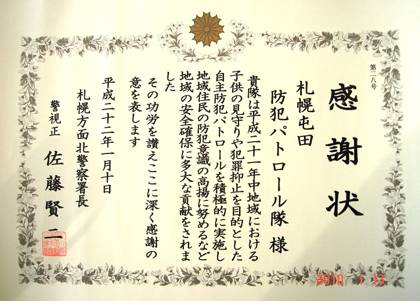 第二八号
感謝状
札幌屯田
防犯パトロール隊 様
貴隊は平成二十一年中地域における
子供の見守りや犯罪抑止を目的とした
自主防犯パトロールを積極的に実施し
地域住民の防犯意識の高揚に努めるなど
地域の安全確保に多大な貢献をされま
した
その功労を讃えここに深く感謝の
意を表します
平成二十二年一月十日
札幌方面北警察署長
警視正 佐藤賢二